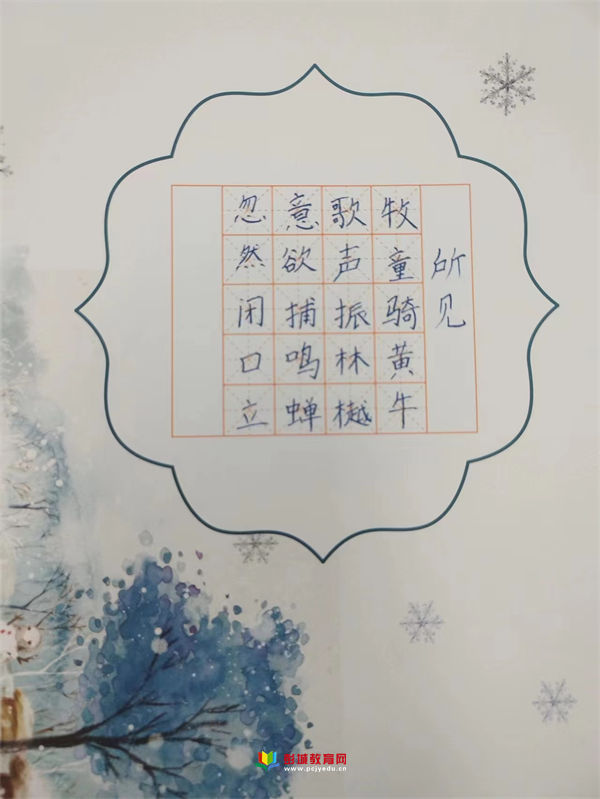 所见
牧童骑黄牛
歌声振林樾
意欲捕鸣蝉
忽然闭口立
彭城教育网
www.pcjyedu.cn